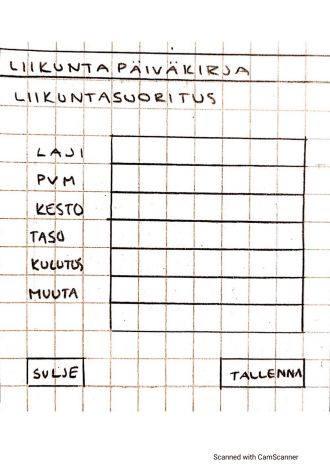 LIIKUNTAPÄIVÄKIRJA
LIIKUNTASUORITUS
LAJI
PVM
KESTO
TASO
KULUTUS
MUUTA
SULJE
TALLENNA
Scanned with CamScanner